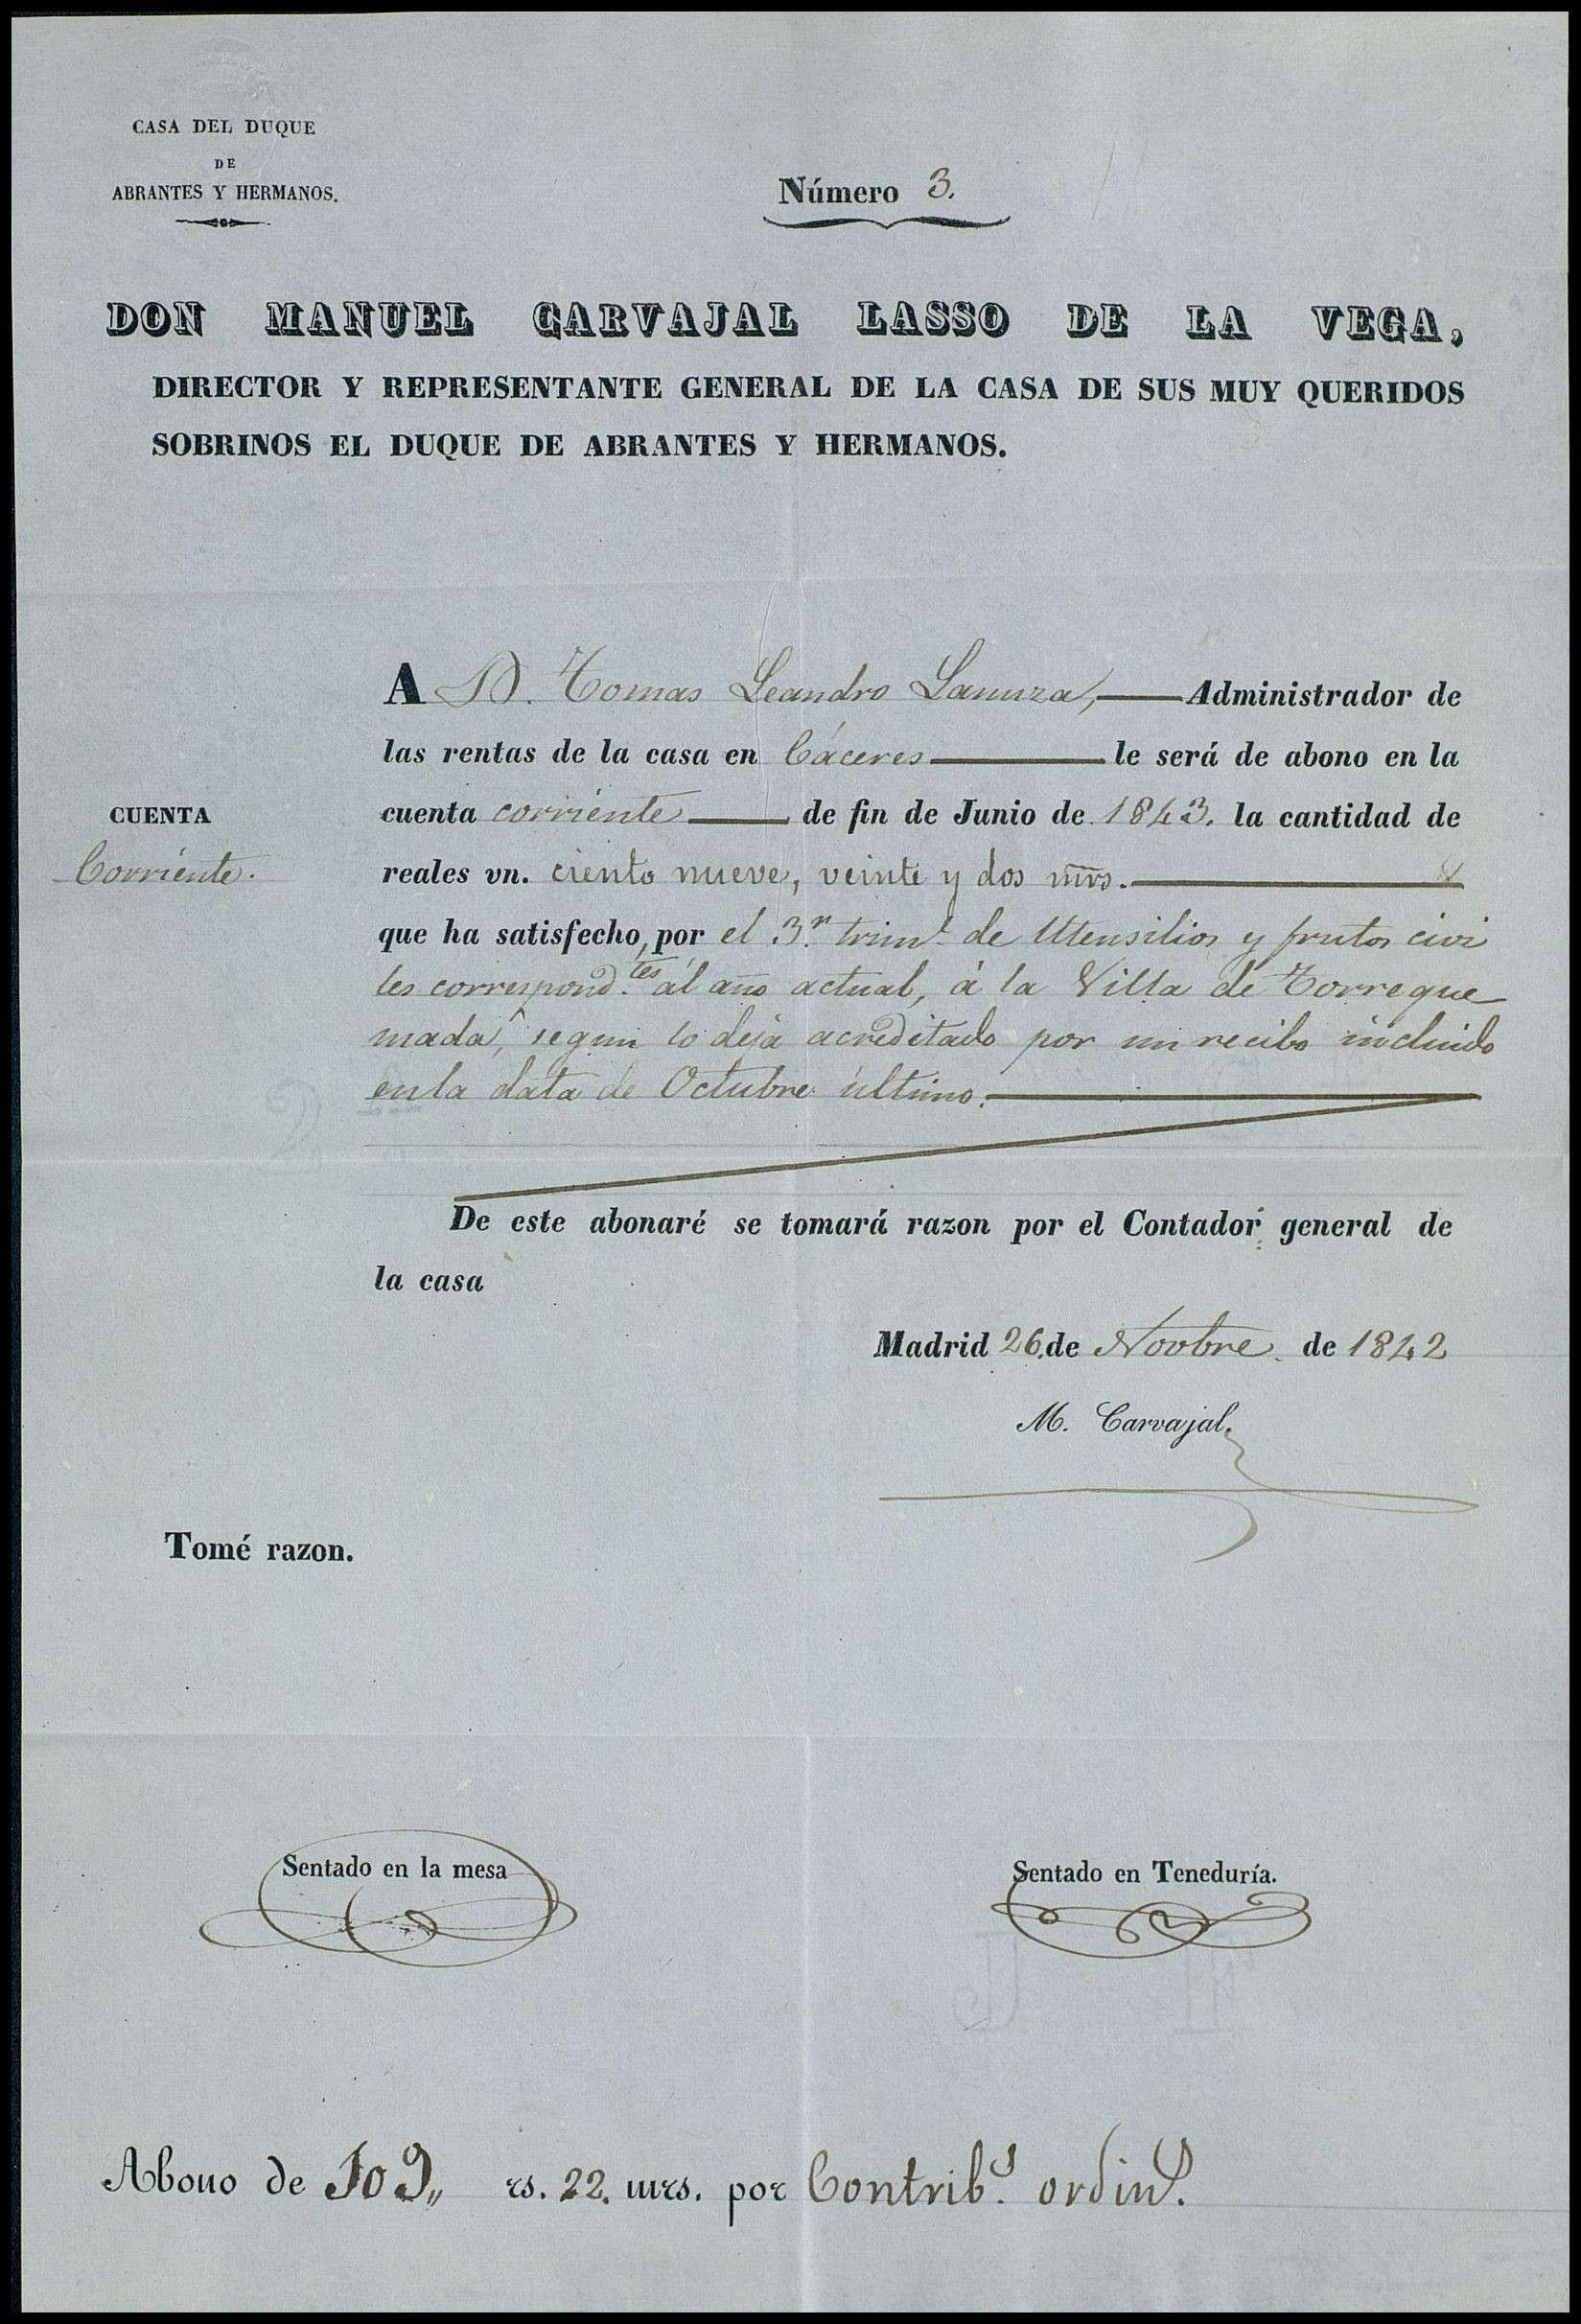 CASA DEL DUQUE
DE
ABRANTES Y HERMANOS.
Número 3.
DON MANUEL CARVAJAL LASSO DE LA VEGA,
DIRECTOR Y REPRESENTANTE GENERAL DE LA CASA DE SUS MUY QUERIDOS
SOBRINOS EL DUQUE DE ABRANTES Y HERMANOS.
A D. Tomas Leandro Lanuza, Administrador de
las rentas de la casa en Cáceres le será de abono en la
CUENTA
Corriente.
cuenta corriente de fin de Junio de 1843. la cantidad de
reales vn. ciento nueve, veinte y dos mrs.
que ha satisfecho, por el 3.r trim.e de Utensilios y frutos civi
les correspond.tes ál año actual, á la Villa de Torreque
mada, segun lo deja acreditado por un recibo incluido
en la data de Octubre último.
De este abonaré se tomará razon por el Contador general de
la casa
Madrid 26. de Novbre. de 1842
M. Carvajal.
Tomé razon.
Sentado en la mesa
Sentado en Teneduría.
Abono de 109,, rs. 22. mrs. por Contrib.s ordin.s